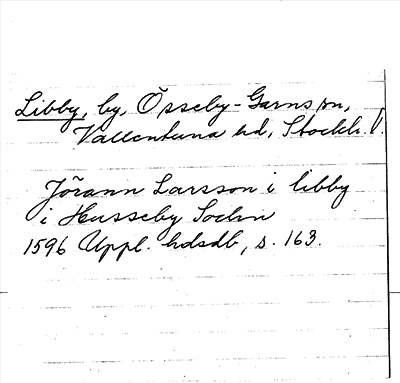 Libby, by, Össeby-Garns sn,
Vallentuna hd, Stockh. l.
Jörann Larsson i libby
i Husseby Sochn
1596 Uppl. hdsdb, s. 163.